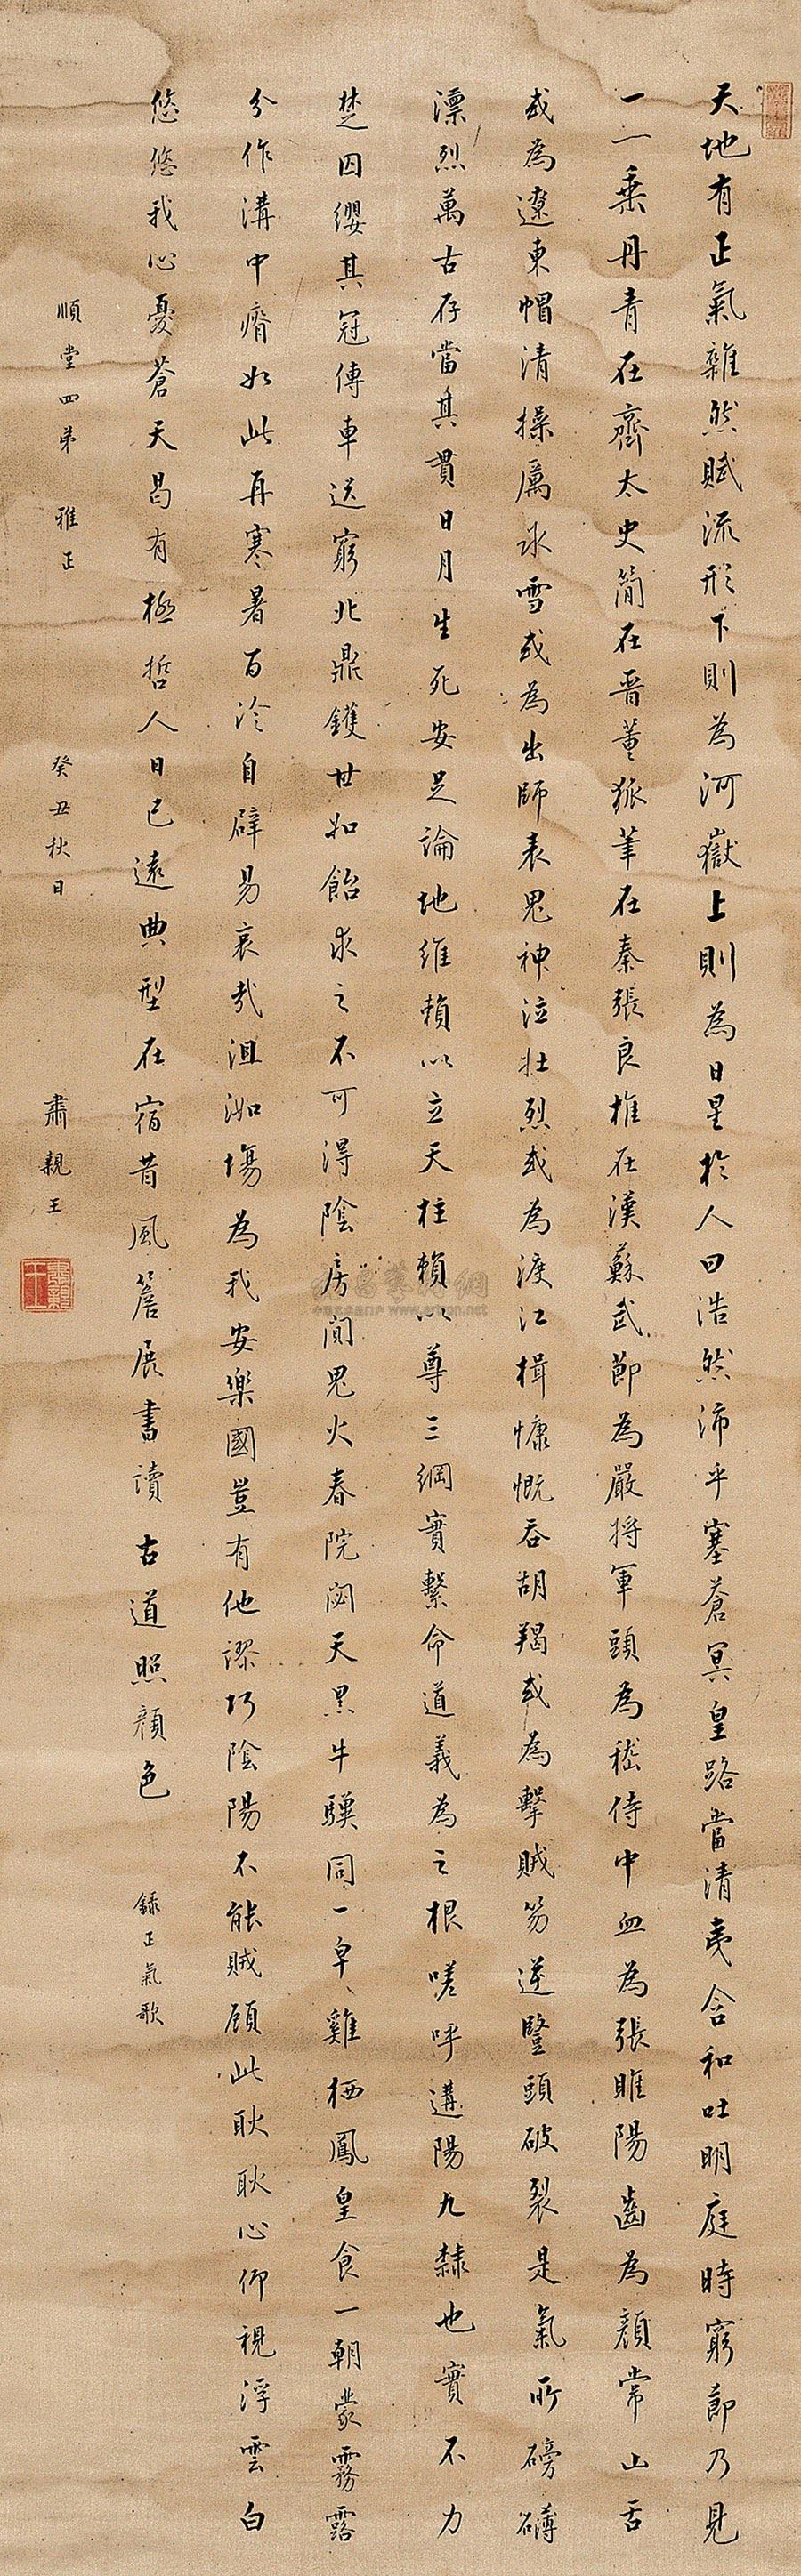 天地有正氣雜然賦流形下則為河嶽上則為日星於人曰浩然沛乎塞蒼冥皇路當清夷含和吐明庭時窮節乃見
一一垂丹青在齊太史簡在晉董狐筆在秦張良椎在漢蘇武節為嚴將軍頭為嵇侍中血為張睢陽齒為顏常山舌
或為遼東帽清操厲冰雪或為出師表鬼神泣壯烈或為渡江楫慷慨吞胡羯或為擊賊笏逆豎頭破裂是氣所磅礴
凜烈萬古存當其貫日月生死安足論地維賴以立天柱賴以尊三綱實繫命道義為之根嗟呼遘陽九隸也實不力
楚囚纓其冠傳車送窮北鼎鑊甘如飴求之不可得陰房闐鬼火春院閟天黑牛驥同一皁雞栖鳳皇食一朝蒙霧露
分作溝中瘠如此再寒暑百沴自辟易哀哉沮洳場為我安樂國豈有他謬巧陰陽不能賊顧此耿耿心仰視浮雲白
悠悠我心憂蒼天曷有極哲人日已遠典型在宿昔風簷展書讀古道照顏色 錄正氣歌
順堂四弟 雅正 癸丑秋日 肅親王